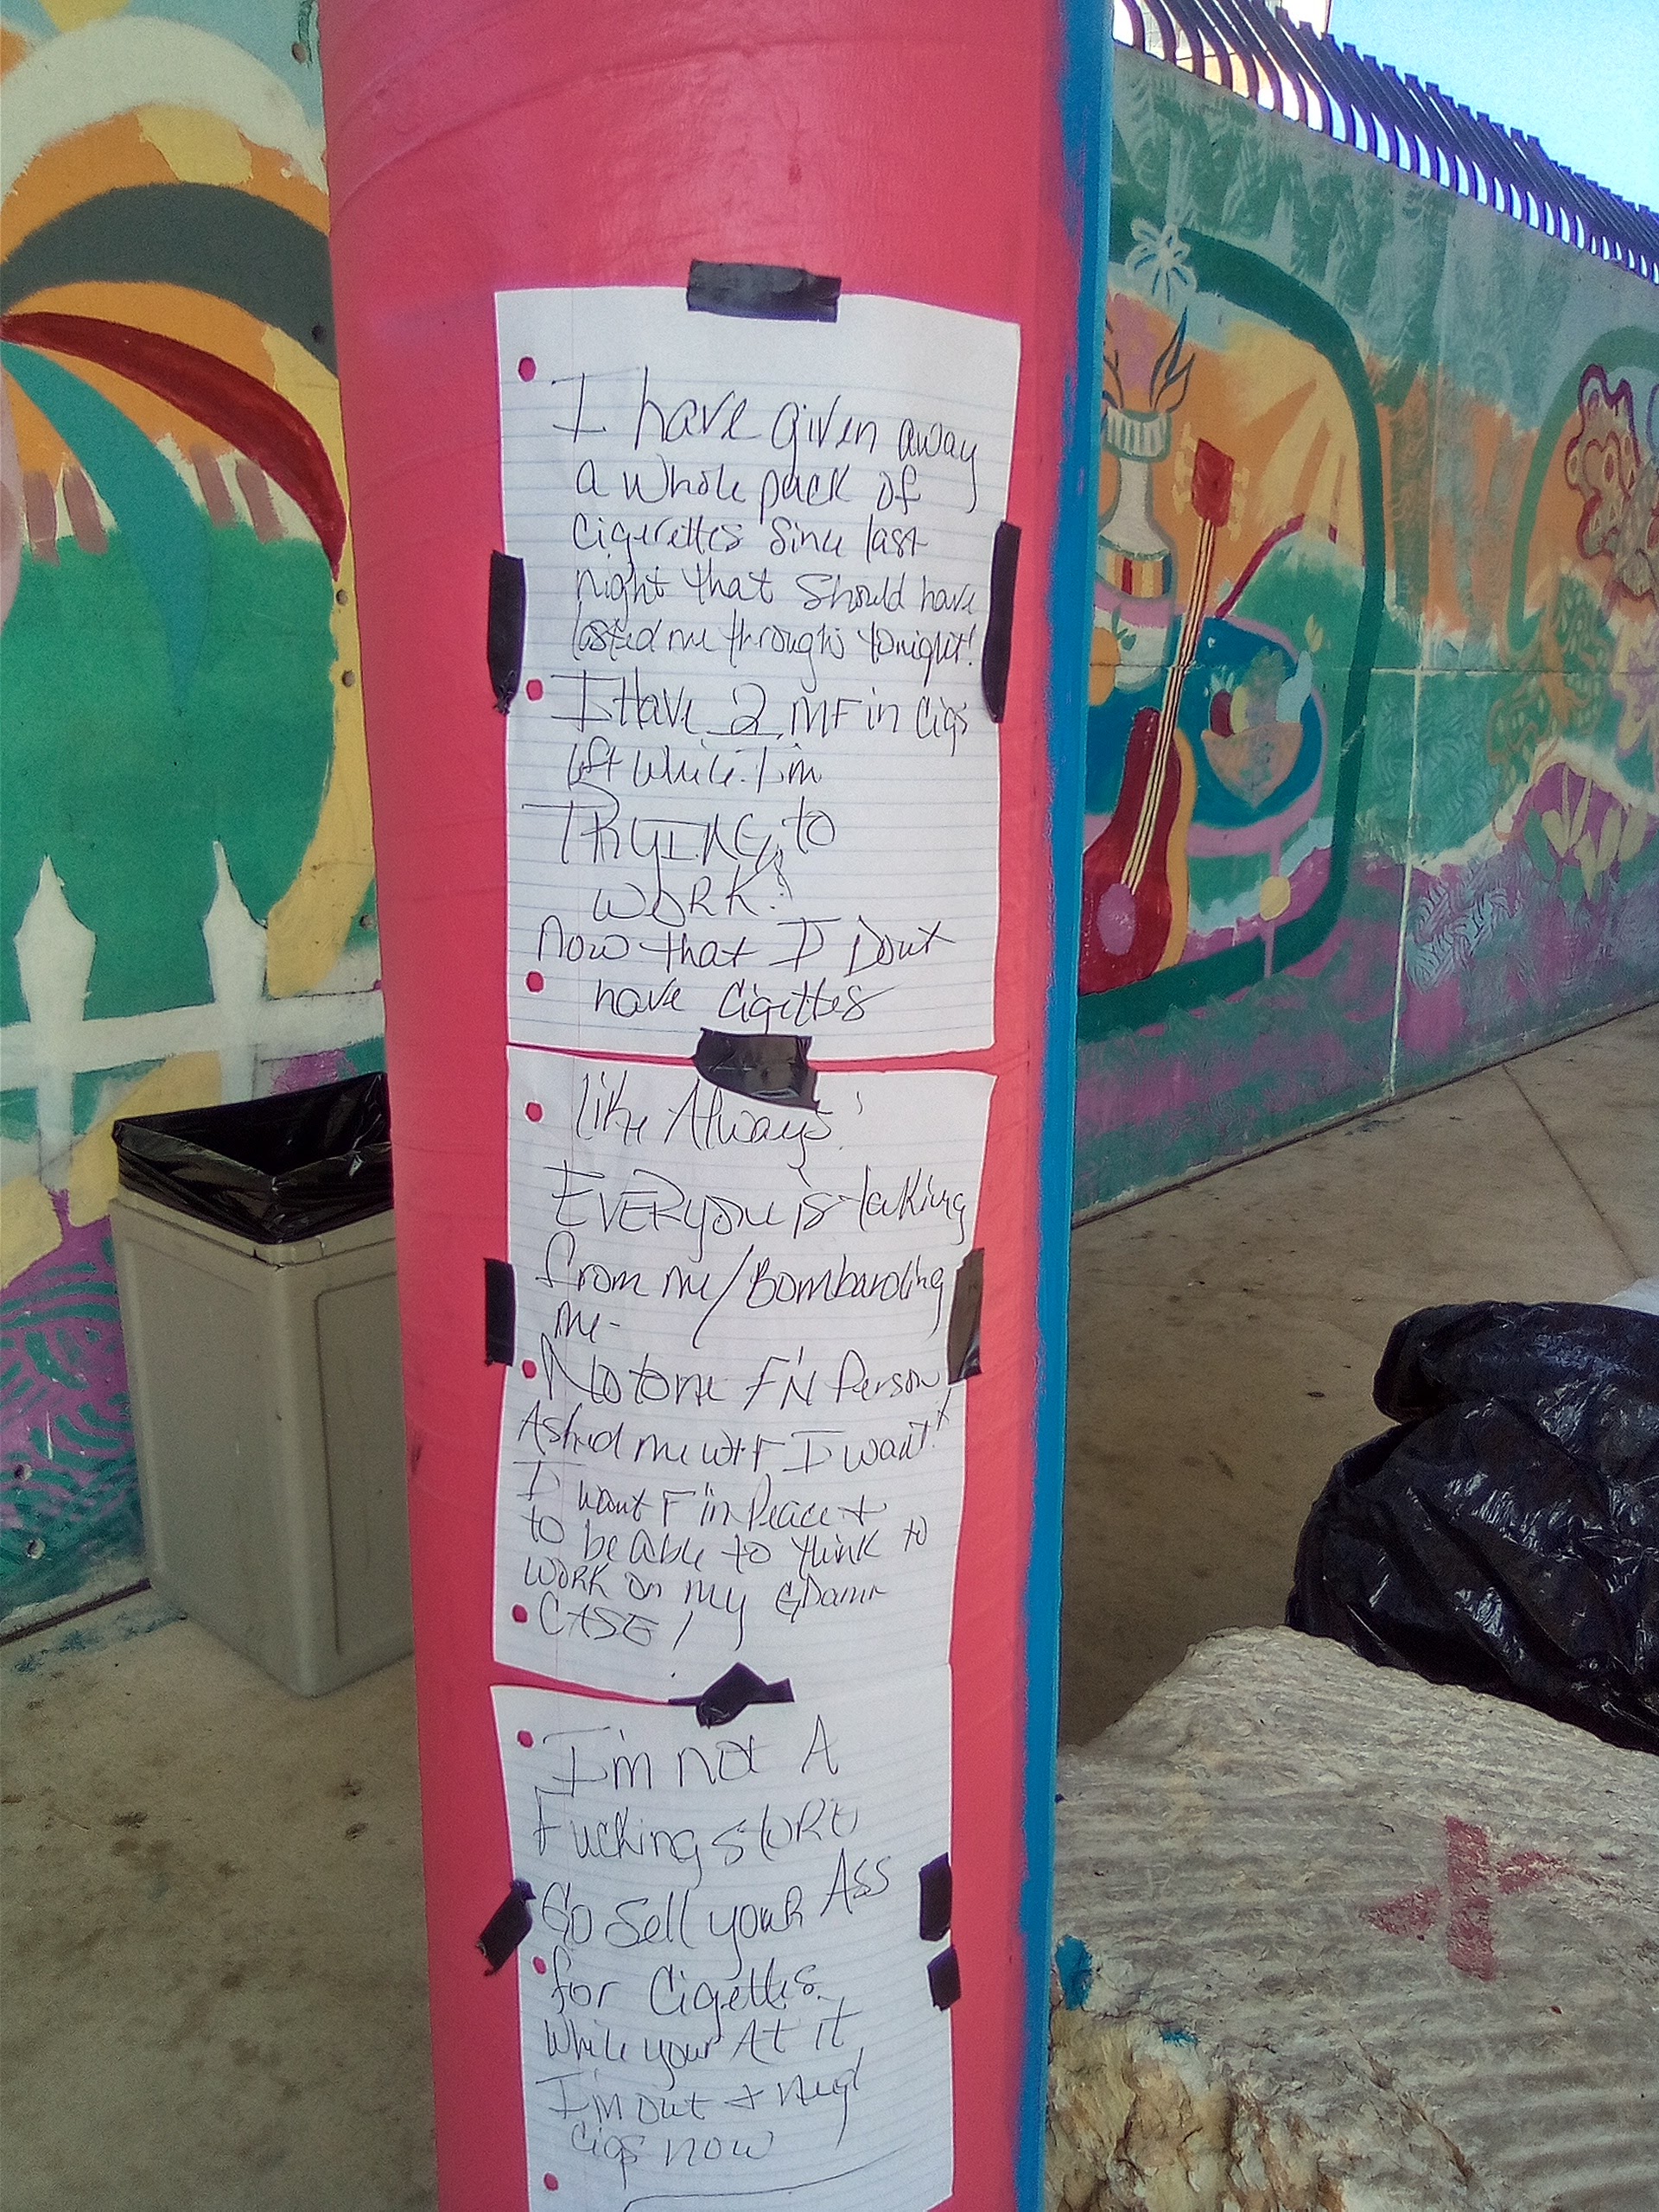 I have given away
a whole pack of
Cigerettes Since last
night that Should have
lasted me through tonight!
I Have 2 MF in Cigs
left while I'm
TRYING to
WORK!
Now that I Dont
have Cigettes
like Always!
EVERYone is taking
from me/Bombarding
me-
Not one F'N Person
Asked me wtf I want!
I want F'in Peace +
to be Able to think to
WORK on my GDamn
CASE!
I'm not A
Fucking STORE
Go Sell your ASS
for Cigettes
While your At it,
I'm out + need
Cigs now